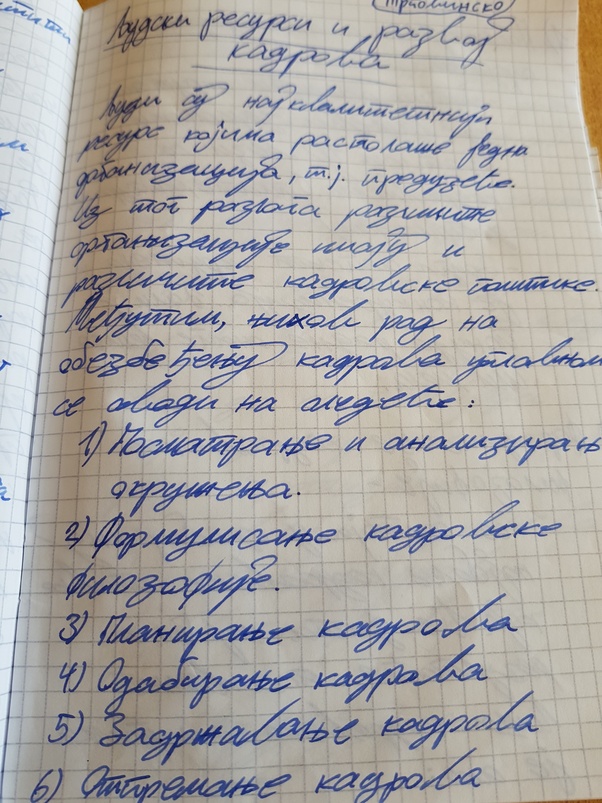 трговинско
Људски ресурси и развој
кадрова
Људи су најквалитетнији
ресурс којима располаше једна
организација, т.ј. предузеће.
Из тог разлога различите
организације имају и
различите кадровске политике.
Међутим, њихов рад на
обезбеђењу кадрова углавном
се своди на следеће:
1) Посматрање и анализирањ
окружења.
2) Формулисање кадровске
филозофије.
3) Планирање кадрова
4) Одабирање кадрова
5) Задржавање кадрова
6) Отпремање кадрова